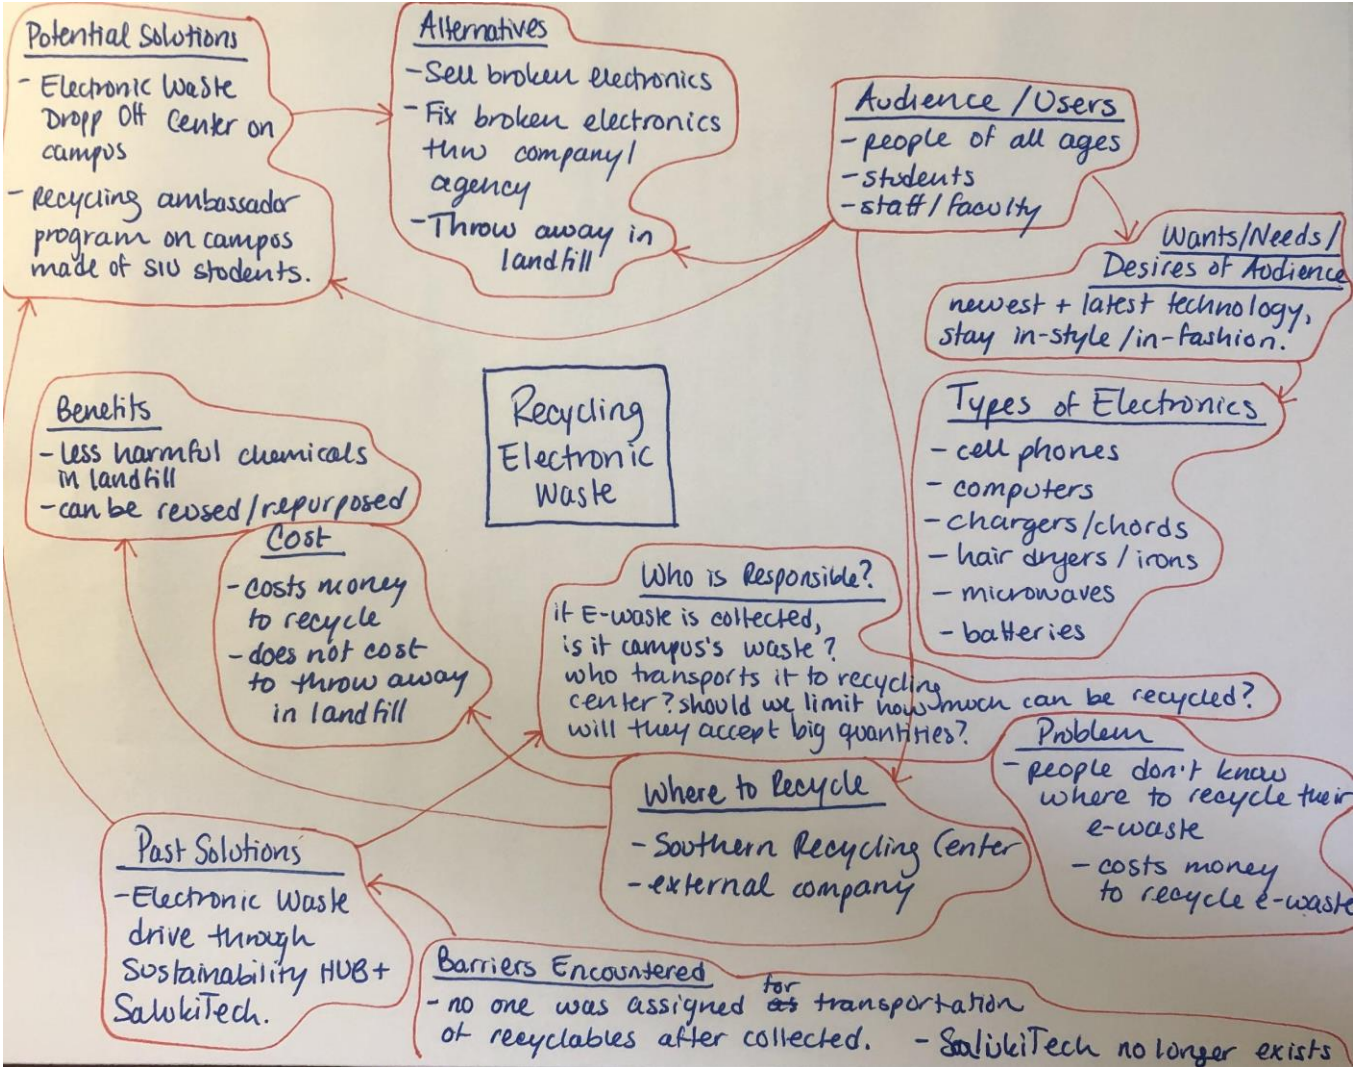 Potential Solutions
- Electronic Waste
Dropp Off Center on
campus
- Recycling ambassador
program on campos
made of SIU students.
Alternatives
- Sell broken electronics
- Fix broken electronics
thru company/
agency
- Throw away in
landfill
Audience/Users
- people of all ages
- students
- staff/faculty
Wants/Needs/
Desires of Audience
newest + latest technology,
stay in-style/in-fashion.
Types of Electronics
- cell phones
- computers
- chargers/chords
- hair dryers/irons
- microwaves
- batteries
Recycling
Electronic
Waste
Benefits
- less harmful chemicals
in landfill
- can be reused/repurposed
Cost
- costs money
to recycle
- does not cost
to throw away
in landfill
Who is Responsible?
if E-waste is collected,
is it campus's waste?
who transports it to recycling
center? should we limit how much can be recycled?
will they accept big quantities?
Problem
- people don't know
where to recycle their
e-waste
- costs money
to recycle e-waste
Where to Recycle
- Southern Recycling Center
- external company
Past Solutions
- Electronic Waste
drive through
Sustainability HUB +
SalukiTech.
Barriers Encountered
- no one was assigned for transportation
of recyclables after collected. - SalukiTech no longer exists